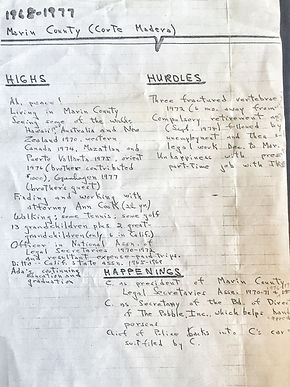 1968-1977
Marin County (Corte Madera)
HIGHS
Ah, peace!
Living in Marin County
Seeing some of the world:
Hawaii, Australia and New
Zealand 1970, western
Canada 1974, Mazatlan and
Puerto Vallarta 1975, orient
1976 (brother contributed
Copenhagen 1977
(brother's guest)
Finding and working with
attorney Ann Cook
Walking; some Tennis; some golf
13 grandchildren plus 2 great-
grandchildren (only 6 in Calif.)
Officer in National Assn. of
Legal Secretaries 1970-1972
and resultant expense-paid trips.
Ditto - of state assn. 1965-1968
Ada's continuing
education and
graduation
HURDLES
Three fractured vertebrae
1972 (6 mo. away from
Compulsory retirement
(Sept. 1975) followed by
unemployment and then
legal work Dec. to Mar.
Unhappiness with
part-time job with
HAPPENINGS
C. as president of Marin County
Legal Secretaries Assn. 1970-71
C. as Secretary of the Bd. of
of The Pebble, Inc. which helps
persons
Chief of Police backs into C's car
suit filed by C.